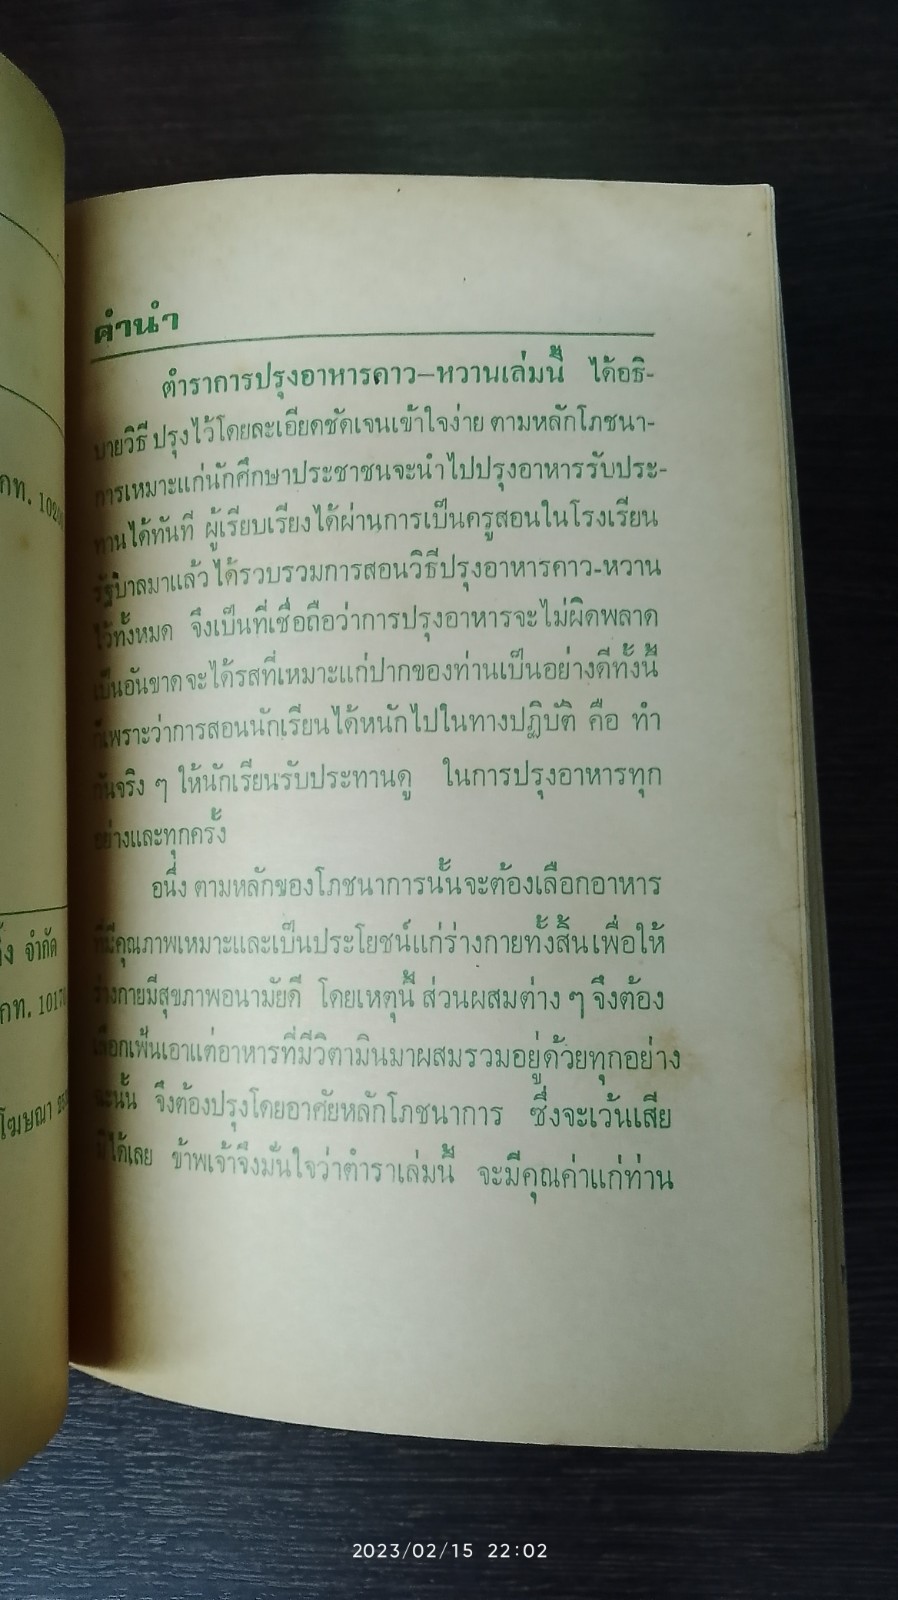 กท. 10200
จำกัด
กท. 10170
โฆษณา
คำนำ
ตำราการปรุงอาหารคาว–หวานเล่มนี้ ได้อธิ-
บายวิธี ปรุงไว้โดยละเอียดชัดเจนเข้าใจง่าย ตามหลักโภชนา-
การเหมาะแก่นักศึกษาประชาชนจะนำไปปรุงอาหารรับประ-
ทานได้ทันที ผู้เรียบเรียงได้ผ่านการเป็นครูสอนในโรงเรียน
รัฐบาลมาแล้ว ได้รวบรวมการสอนวิธีปรุงอาหารคาว-หวาน
ไว้ทั้งหมด จึงเป็นที่เชื่อถือว่าการปรุงอาหารจะไม่ผิดพลาด
เป็นอันขาดจะได้รสที่เหมาะแก่ปากของท่านเป็นอย่างดีทั้งนี้
ก็เพราะว่าการสอนนักเรียนได้หนักไปในทางปฏิบัติ คือ ทำ
กันจริง ๆ ให้นักเรียนรับประทานดู ในการปรุงอาหารทุก
อย่างและทุกครั้ง
อนึ่ง ตามหลักของโภชนาการนั้นจะต้องเลือกอาหาร
ที่มีคุณภาพเหมาะและเป็นประโยชน์แก่ร่างกายทั้งสิ้น เพื่อให้
ร่างกายมีสุขภาพอนามัยดี โดยเหตุนี้ ส่วนผสมต่าง ๆ จึงต้อง
เลือกเฟ้นเอาแต่อาหารที่มีวิตามินมาผสมรวมอยู่ด้วยทุกอย่าง
ฉะนั้น จึงต้องปรุงโดยอาศัยหลักโภชนาการ ซึ่งจะเว้นเสีย
มิได้เลย ข้าพเจ้าจึงมั่นใจว่าตำราเล่มนี้ จะมีคุณค่าแก่ท่าน
2023/02/15 22:02